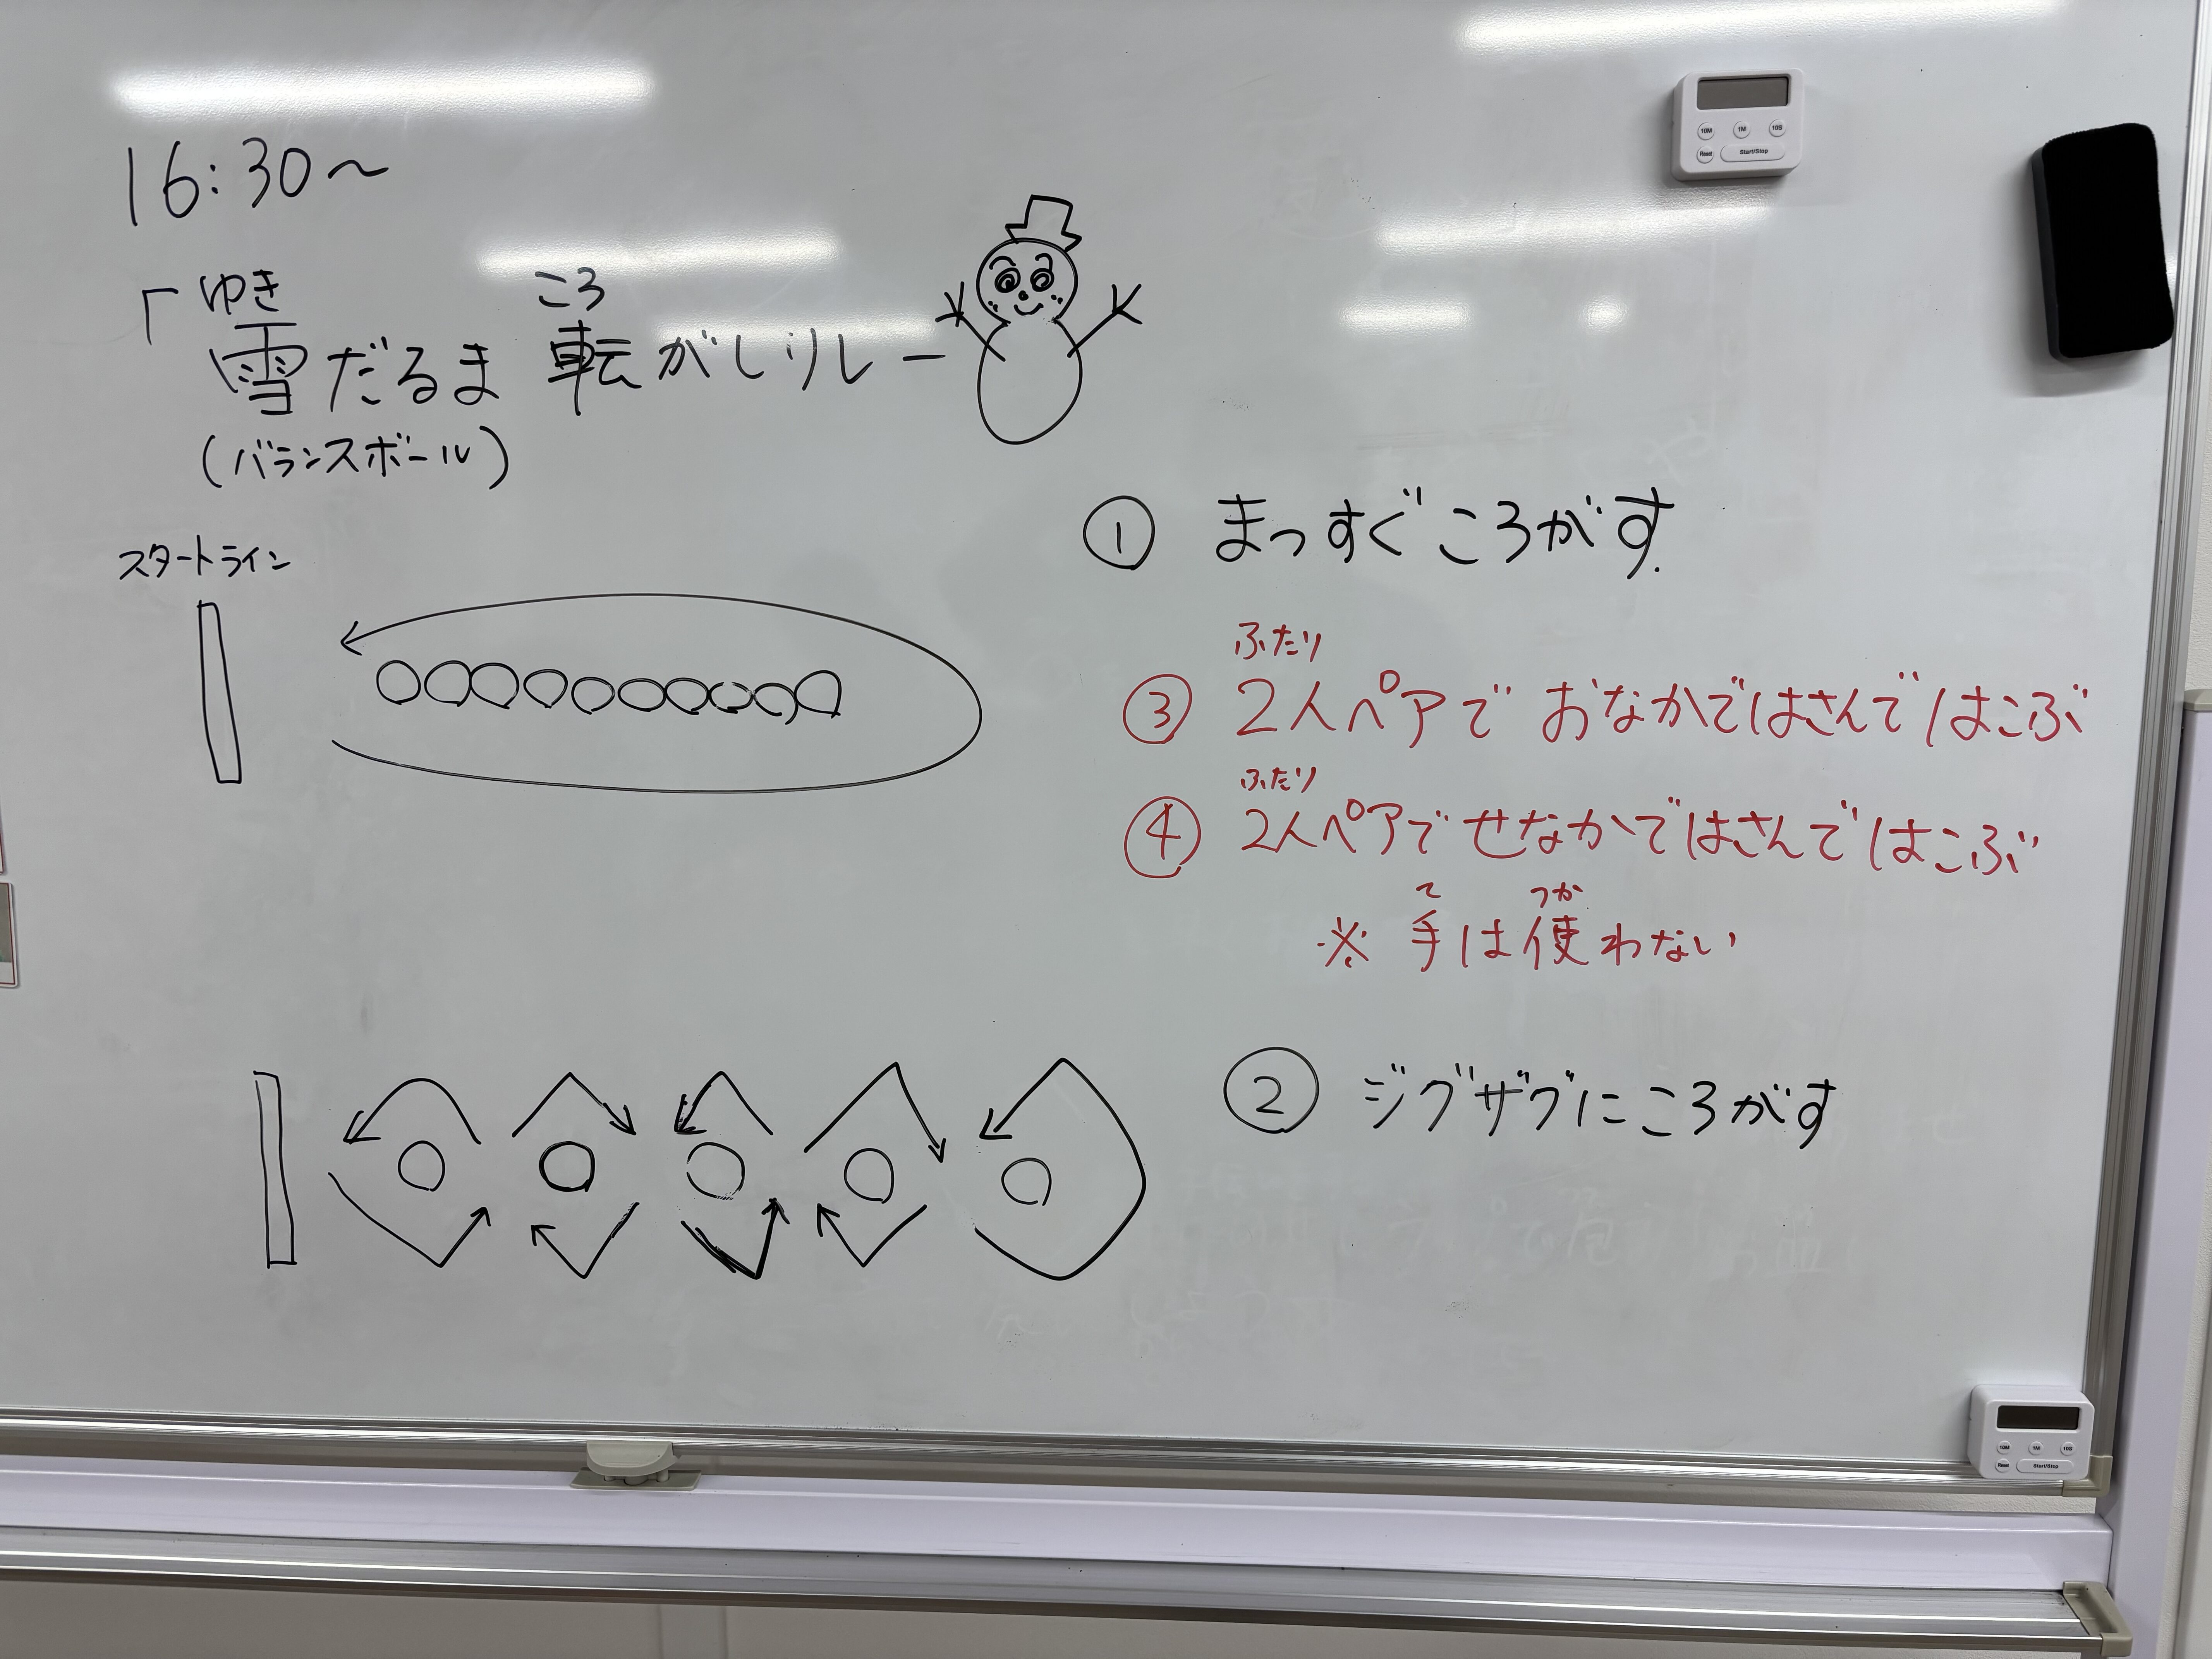 16:30～
「ゆき ころ
雪だるま転がしリレー
(バランスボール)
スタートライン
① まっすぐころがす.
ふたり
③ 2人ペアで おなかではさんではこぶ
ふたり
④ 2人ペアでせなかではさんではこぶ
て つか
※ 手は使わない
② ジグザグにころがす
10M 1M 10S
Reset Start/Stop
10M 1M 10S
Reset Start/Stop